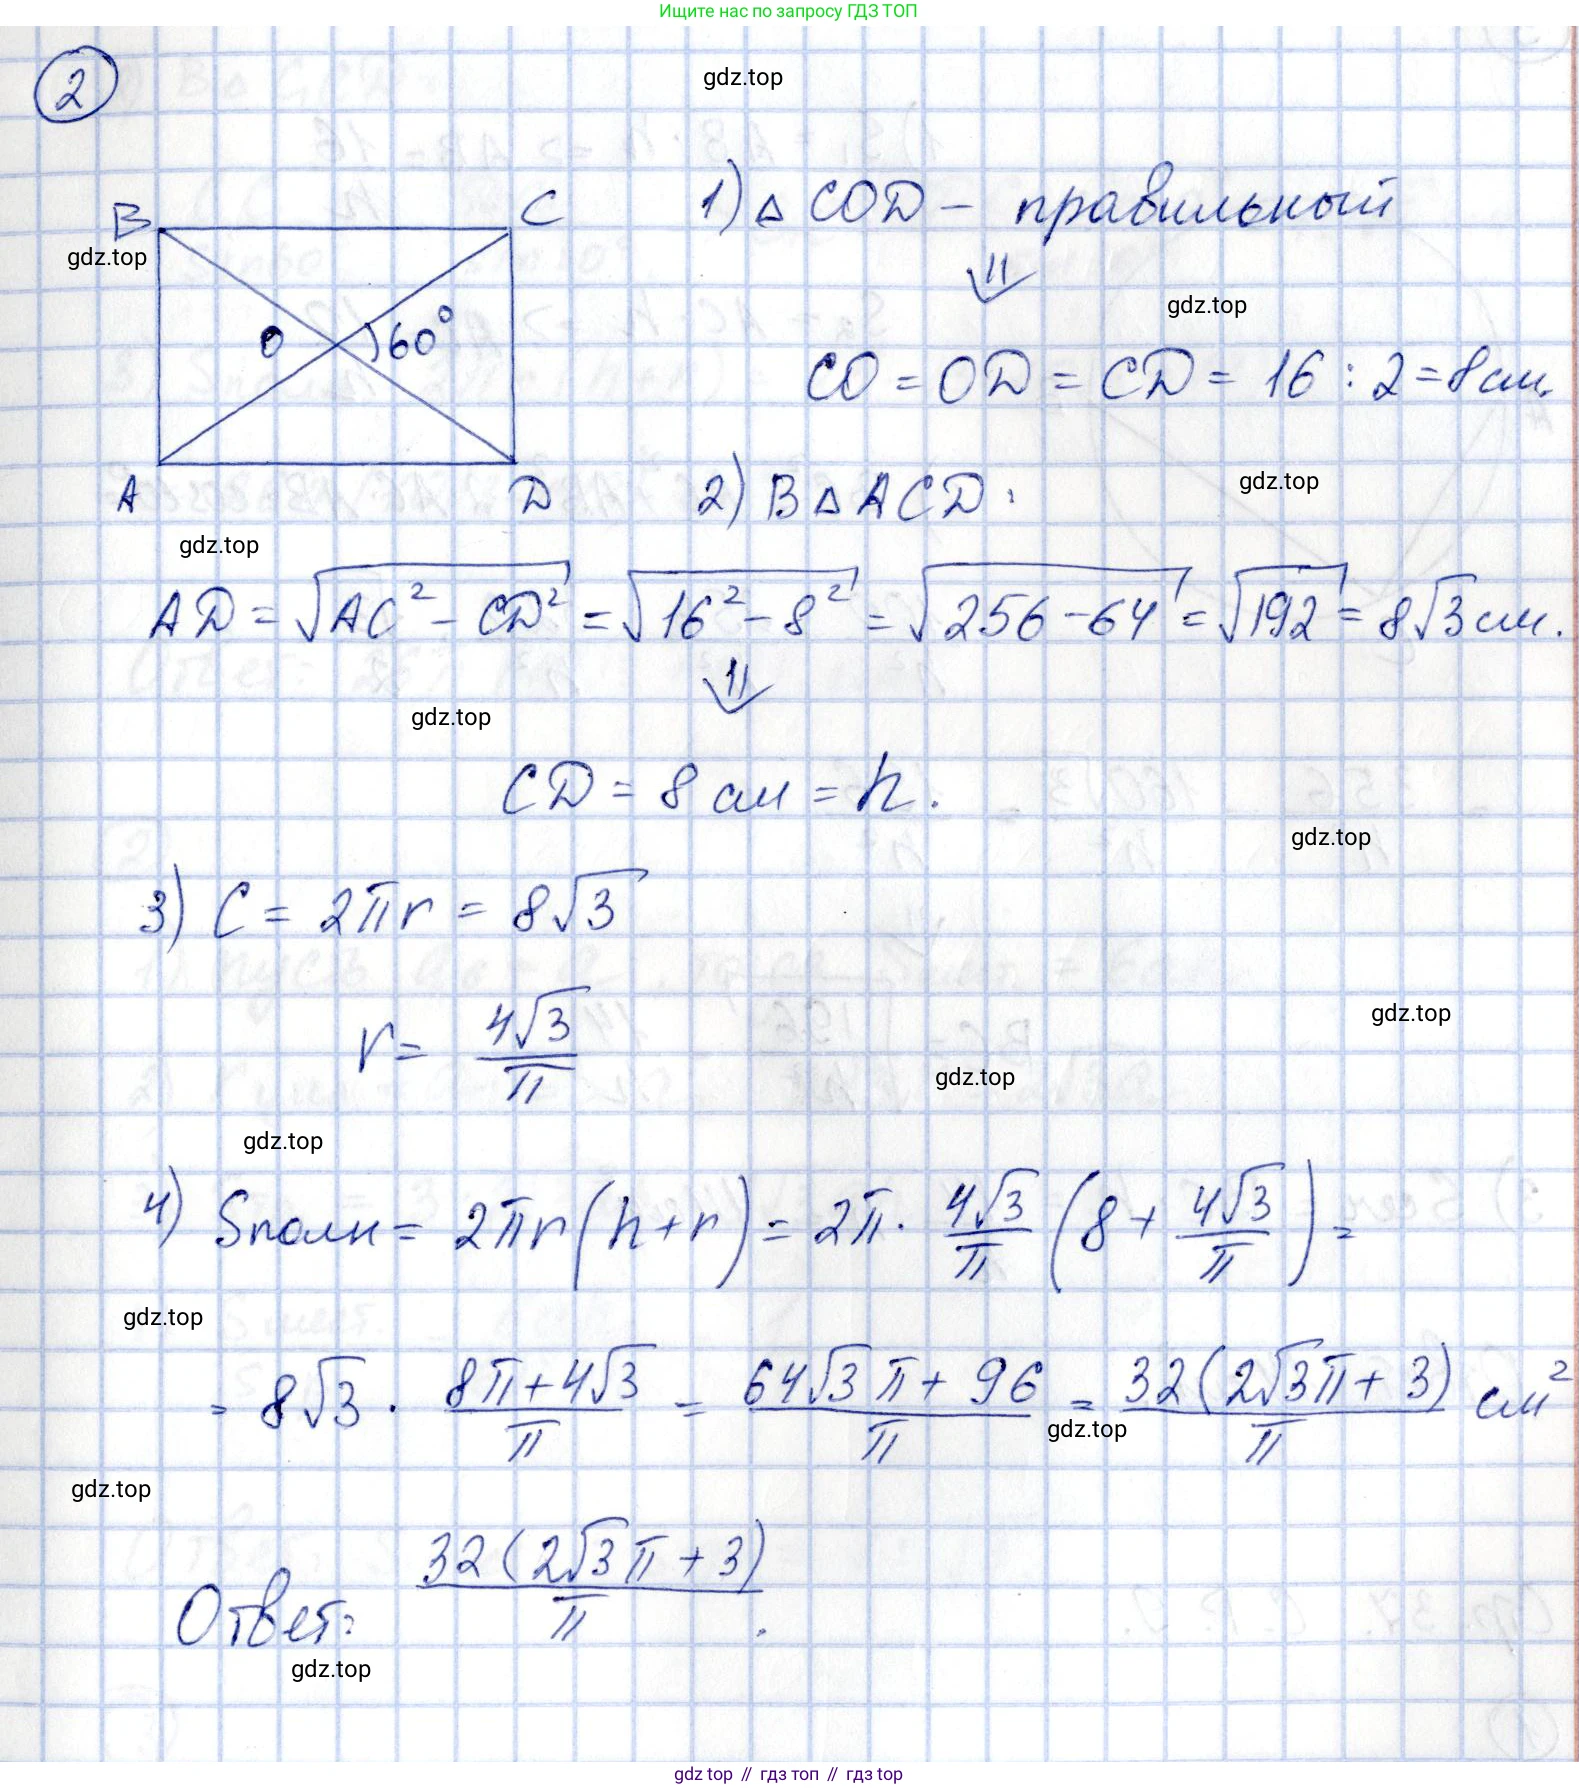 Ищите нас по запросу ГДЗ ТОП
2
gdz.top
B C
1) △ COD - правильный
gdz.top
⇓
gdz.top
O 60°
CO = OD = CD = 16 : 2 = 8 см.
A D
2) В △ ACD:
gdz.top
gdz.top
AD = √(AC² - CD²) = √(16² - 8²) = √(256 - 64) = √192 = 8√3 см.
⇓
gdz.top
CD = 8 см = h.
gdz.top
3) C = 2πr = 8√3
gdz.top
r = 4√3/π
gdz.top
gdz.top
4) Sполн = 2πr(h + r) = 2π · 4√3/π (8 + 4√3/π) =
gdz.top
= 8√3 · (8π + 4√3)/π = (64√3π + 96)/π = 32(2√3π + 3)/π см²
gdz.top
gdz.top
Ответ: 32(2√3π + 3)/π.
gdz.top
gdz top // гдз топ // гдз top